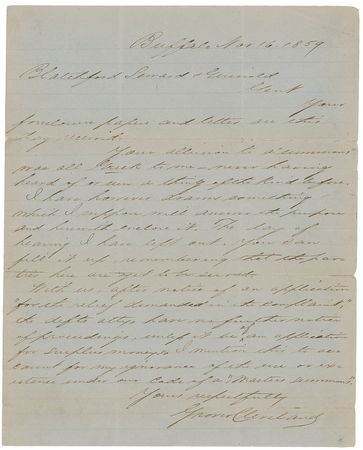 Buffalo Nov 16. 1859
Blatchford Seward & Griswold
Gent
Your
foreclosure papers and letter are this
day received.
Your allusion to a "summons"
was all Greek to me - never having
heard of or seen a thing of the kind before.
I have however drawn something
which I suppose will answer the purpose
and herewith enclose it. The day of
hearing I have left out. You can
fill it up, remembering that the par
ties here are yet to be served.
With us, after notice of an application
"for the relief demanded in the complaint"
the defts attys have no further notice
of proceedings, unless it be an application
for surplus moneys. I mention this to ac
count for my ignorance of the use or ex
istence under our Code of a "Masters summons".
Yours respectfully
Grover Cleveland